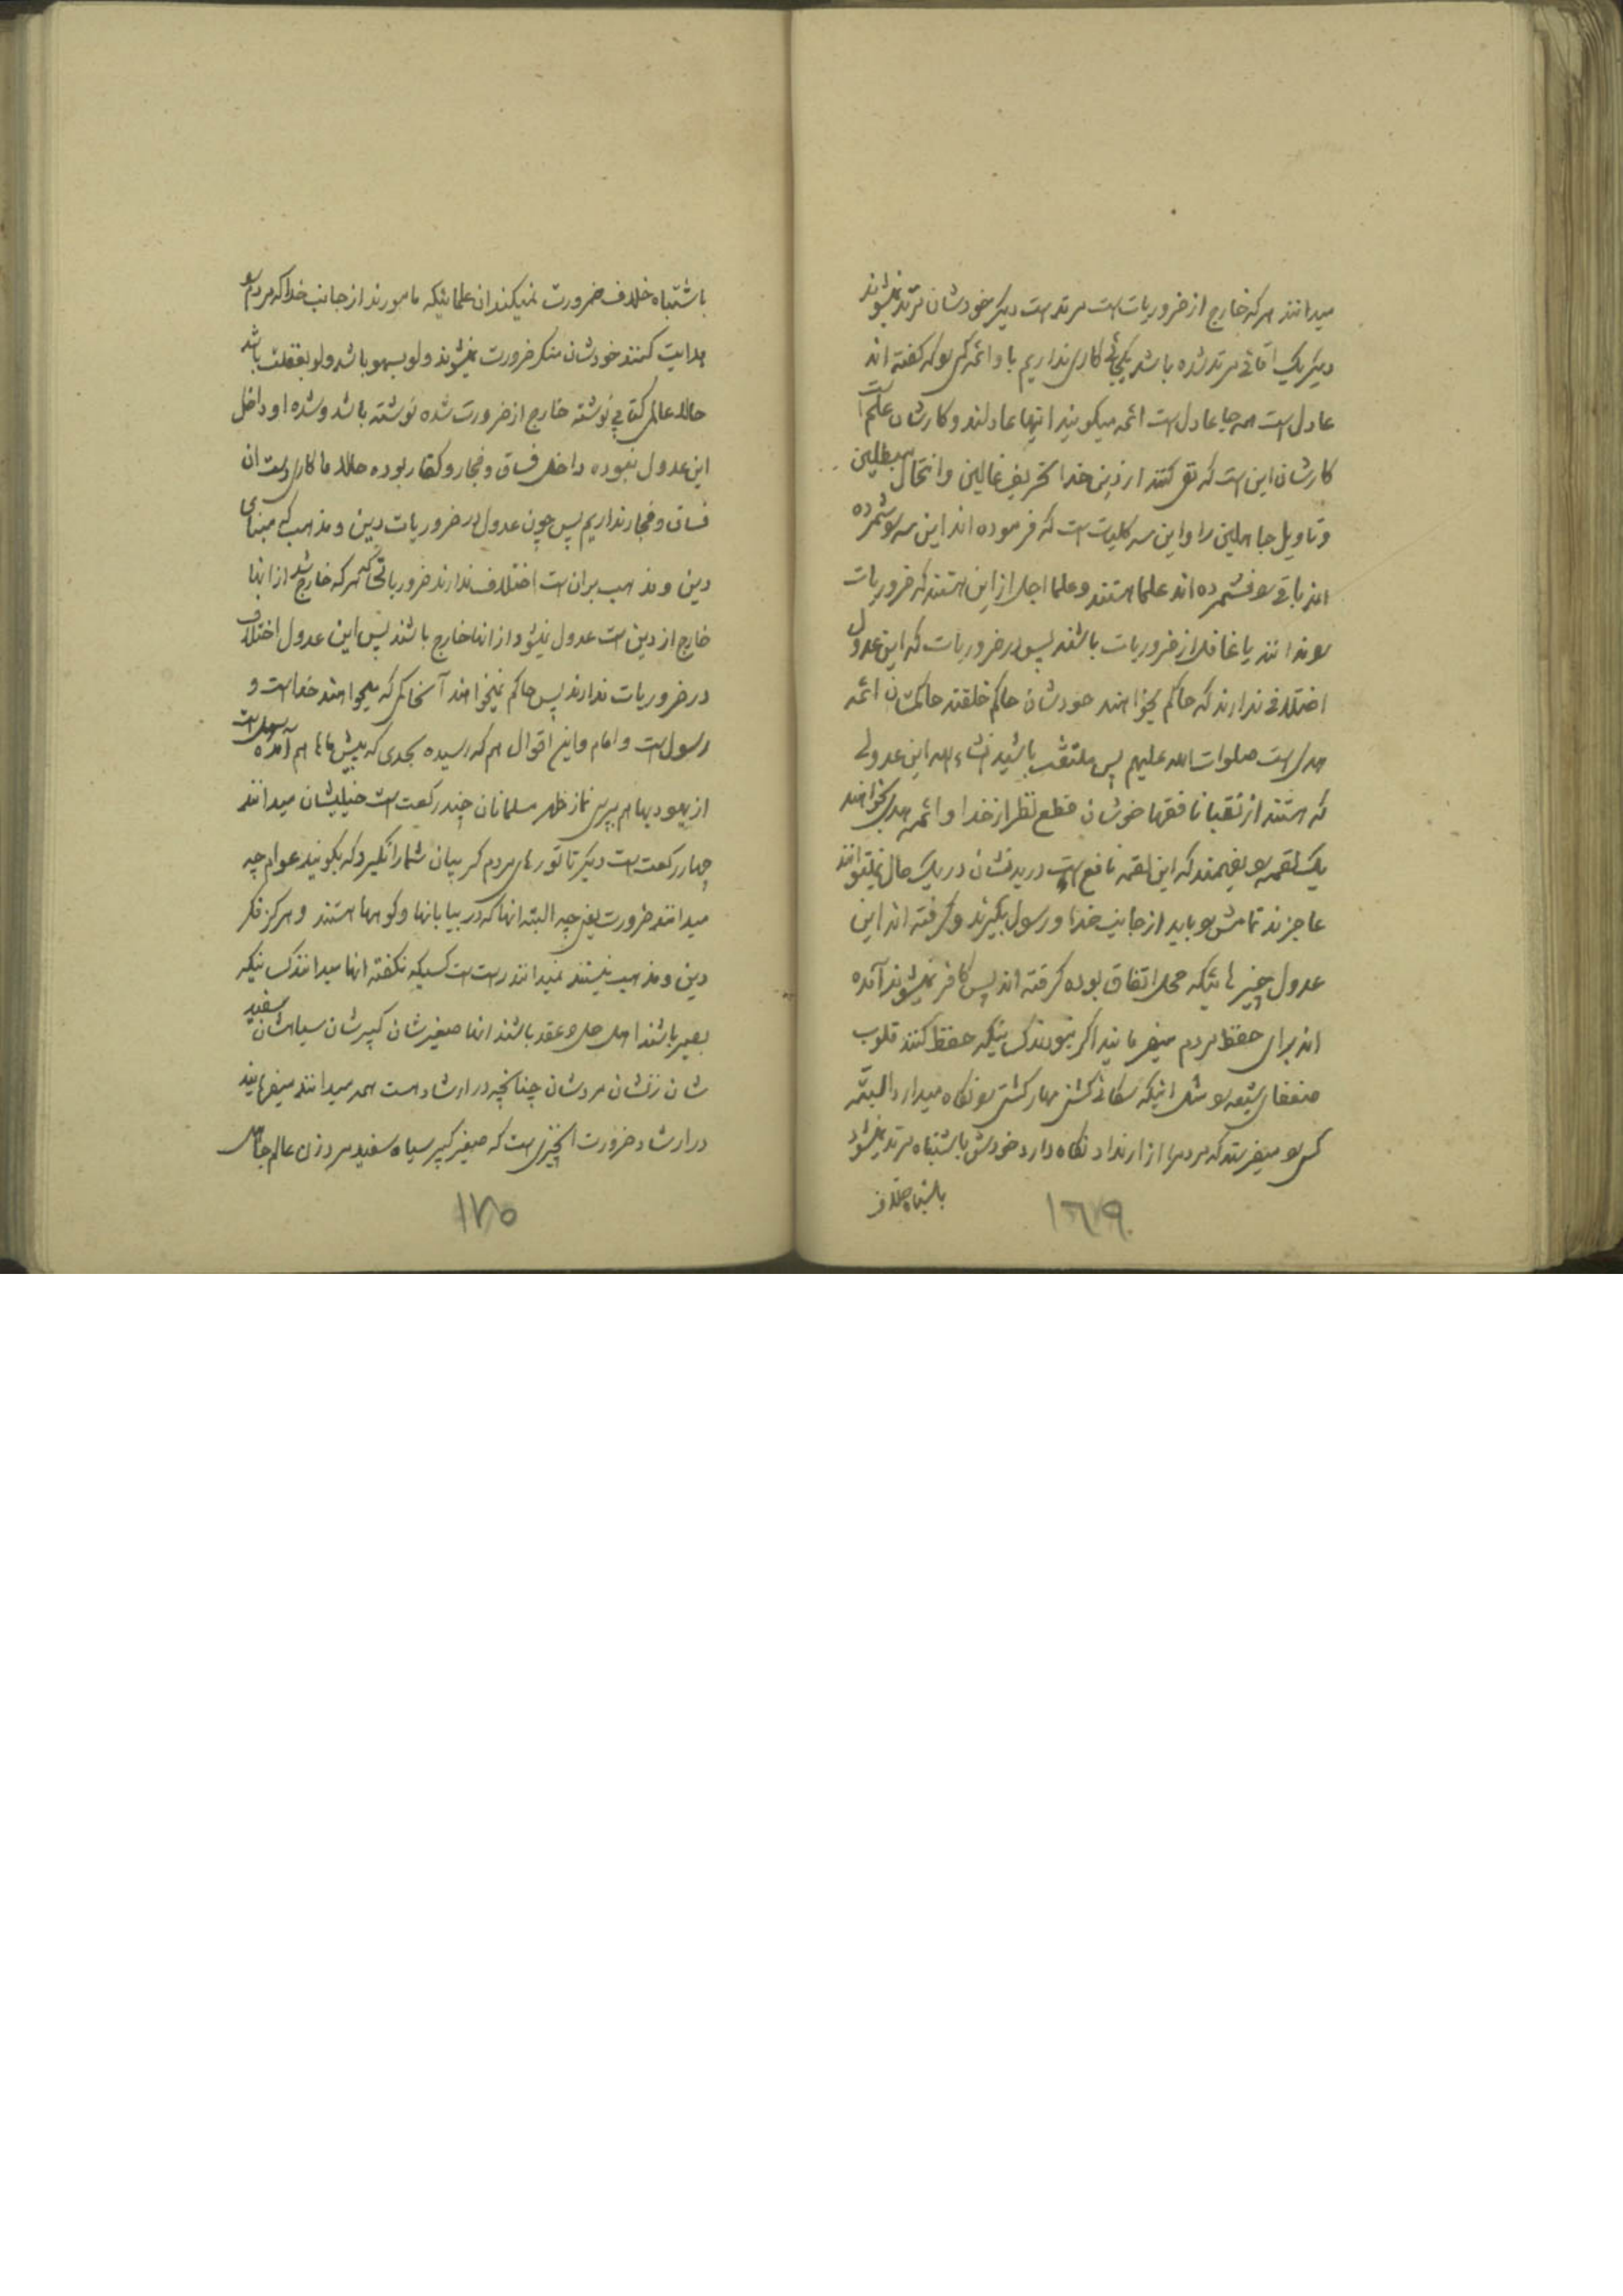 میدانند هرکه خارج از ضروریات است مرتد است دیگر خودشان مرتد نمیشوند
دیگر یک اتفاقی مرتد شده باشد یکجائی کاری نداریم با او ائمه کسی سو که گفته اند
عادل است همه جا عادل است ائمه میگویند اینها عادلند و کارشان علم است
کارشان این است که نفی کنند از دین خدا تحریف غالین و انتحال مبطلین
و تاویل جاهلین را و این سه کلیات است که فرموده اند این سه سو شمرده
اند باقی سو نشمرده اند علما هستند و علما اجل از این هستند که ضروریات
سو ندانند یا غافل از ضروریات باشند پس در ضروریات که این عدول
اختلافی ندارند که حاکم بخواهند خودشان حاکم خلقند حاکمشان ائمه
هدی است صلوات الله علیهم پس ملتفت باشید انشاء الله این عدولی
که هستند از نقبا تا فقها خوشان قطع نظر از خدا و ائمه هدی بخواهند
یک لقمه سو بفهمند که این لقمه نافع است در بدنشان در یک حال نمیتوانند
عاجزند تمامش سو باید از جانب خدا و رسول بگیرند و گرفته اند این
عدول چیزهائیکه محل اتفاق بوده گرفته اند پس کافر نمیشوند آمده
اند برای حفظ مردم میفرمایند اگر نبودند کسانیکه حفظ کنند قلوب
ضعفای شیعه سو مثل اینکه سکانی کشتی مهار کشتی سو نگاه میدارد البته
کسی سو میفرستد که مردم را از ارتداد نگاه دارد خودش باشتباه مرتد نمیشود
باشتباه خلاف
۱۶۹
باشتباه خلاف ضرورت نمیکند ان علمائیکه مامورند از جانب خدا که مردم سو
هدایت کنند خودشان منکر ضرورت نمیشوند ولو بسهو باشد ولو بغفلت باشد
حالا عالمی کتابی نوشته خارج از ضرورت شده نوشته باشد و شده او داخل
این عدول نبوده داخل فساق و فجار و کفار بوده حالا ما کاری دست ان
فساق و فجار نداریم پس چون عدول در ضروریات دین و مذهب که مبنای
دین و مذهب بران است اختلاف ندارند ضروریاتی که هرکه خارج شد از انها
خارج از دین است عدول نمیشود از انها خارج باشند پس این عدول اختلاف
در ضروریات ندارند پس حاکم نمیخواهند آنحاکم که میخواهند خداست و
رسول است و امام و این اقوال هم که رسیده بحدی که پیش ماها هم آمده سهل است
از یهودیها هم بپرس نماز ظهر مسلمانان چند رکعت است خیلیشان میدانند
چهار رکعت است دیگر تا تورهای مردم گریبان شما را نگیرد که بگویند عوام چه
میدانند ضرورت یعنی چه البته انها که در بیابانها و کوهها هستند و هرگز فکر
دین و مذهب نیستند نمیدانند راست است کسیکه نگفته انها میدانند کسانیکه
بصیر باشند اهل حل و عقد باشند انها صغیرشان کبیرشان سیاهشان سفید
شان زنشان مردشان چنانچه در ارشاد است همه میدانند میفرمایند
در ارشاد ضرورت انچیزی است که صغیر کبیر سیاه سفید مرد زن عالم جاهل
۱۷۰